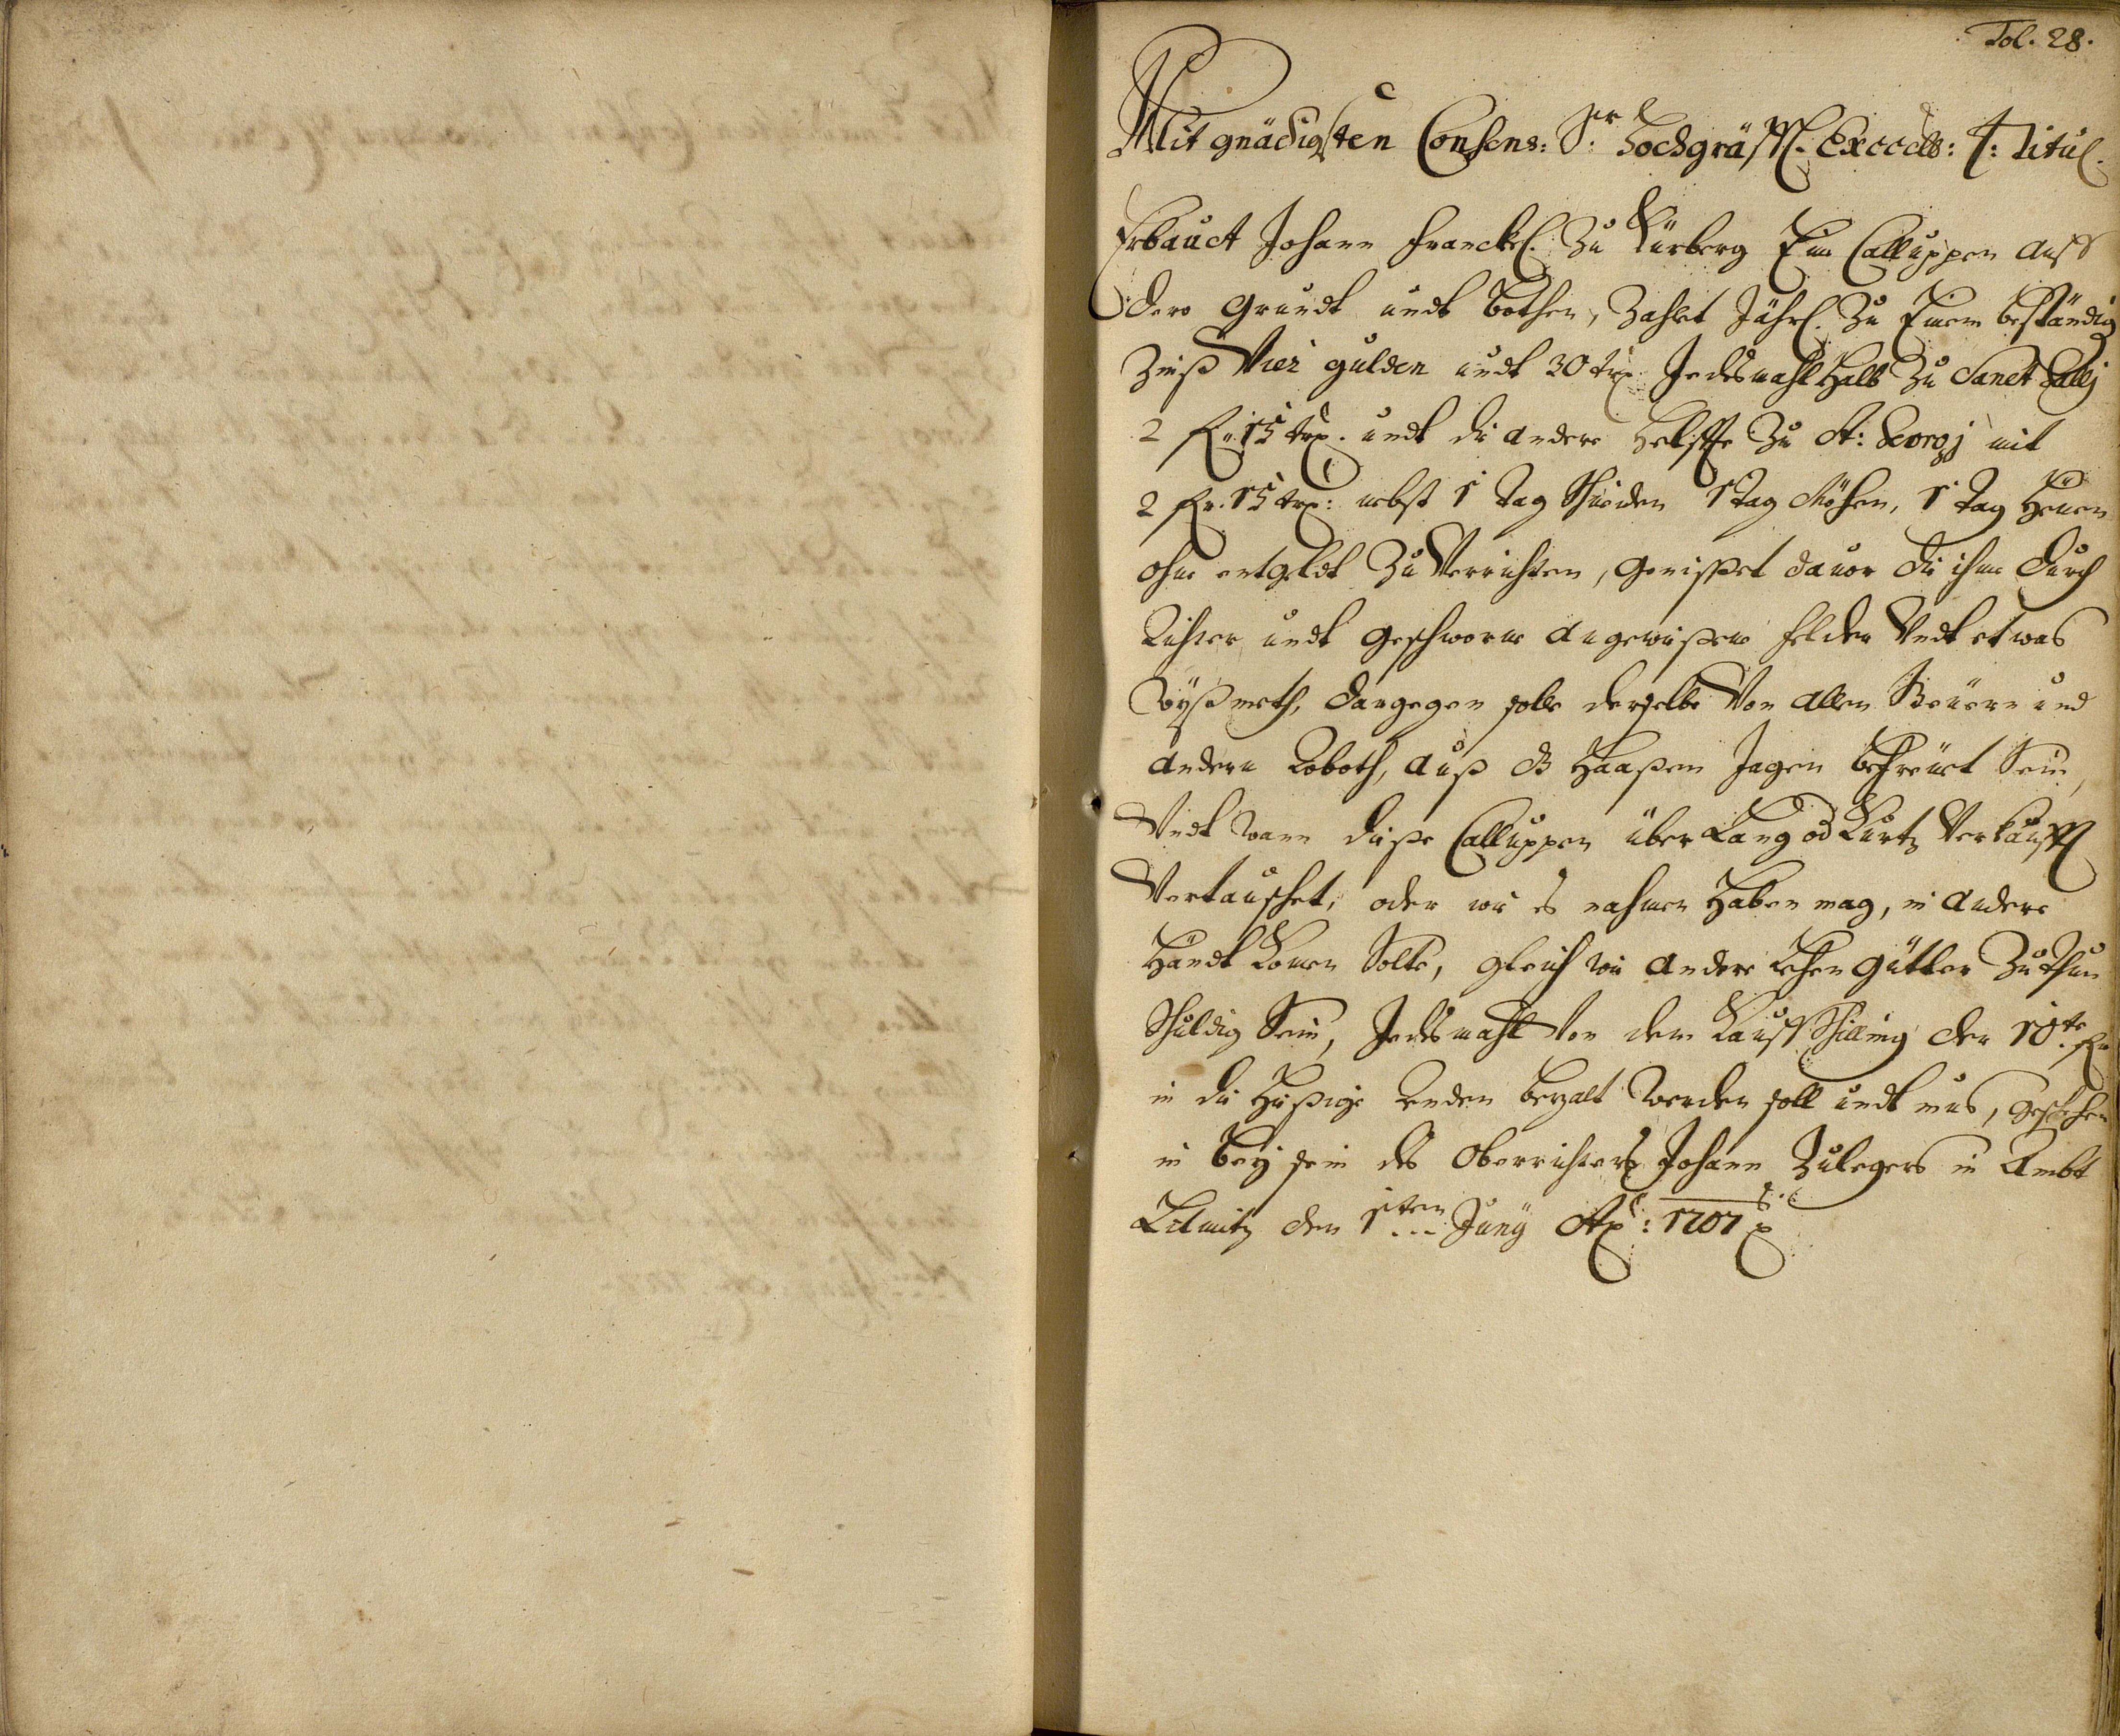 Fol. 28.
Mit gnädigsten Consens: Sr: Hochgräffl. Excells: T: Titul.
Erbauet Johann Franckl. Zu Kürberg Eine Calluppen auff
dero Grundt undt Bothen, Zahlet Jährl. Zu Einem beständig
Zinß Vier gulden undt 30 krx. Jedesmahl Halb Zu Sanct Gallj
2 fl. 15 krx. undt die andere Helffte Zu St: Georgj mit
2 fl. 15 krx: nebst 1 Tag Schneiden 1 Tag Möhen, 1 Tag Heuen
ohne entgeldt Zu Verrichten, genisset dauor die ihme durch
Richter undt geschworne angewißene Felder Undt etwas
Wyßmeth, dargegen solle derselbe Von allen Steuern und
andern Roboth, auß der Haaßen Jagen befreuet Sein,
Undt wann dieße Calluppen über Lang od Kurtz Verkaufft
Vertauschet, oder wie es nahmen Haben mag, in andere
Händt Komen Solte, gleich wie andere Lehen gütter Zu thun
Schuldig Sein, Jedesmahl Von dem Kauff Schilling der 10te fl.
in die Hießige Renden bezalt werden soll undt mus, geschehen
in bey sein des Oberrichters Johann Zulegers in Ambt
den 1sten Juny Ao: 1707